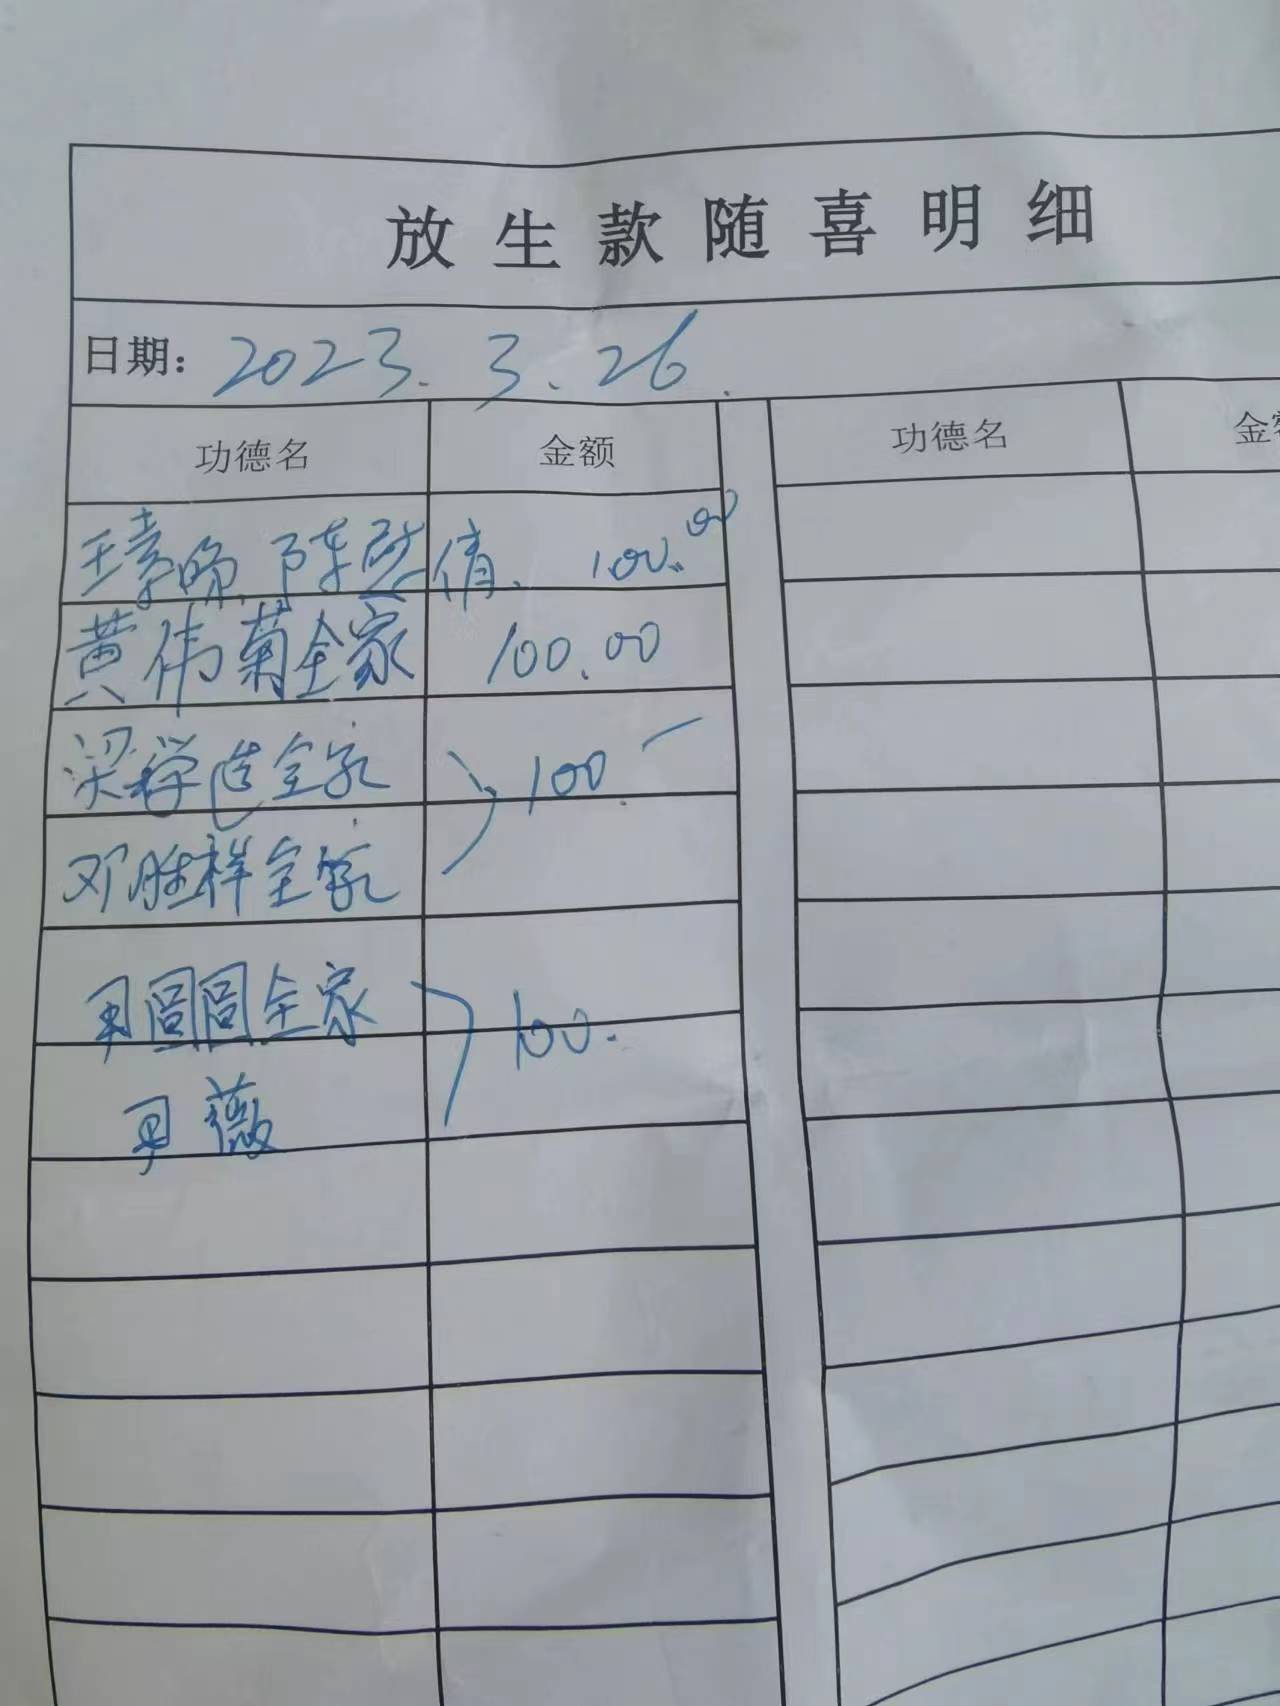 放生款随喜明细
日期: 2023.3.26.
功德名 金额 功德名 金
陈 100.00
黄伟菊全家 100.00
梁学 全家 100
邓胜祥全家
圆圆全家 100.
薇